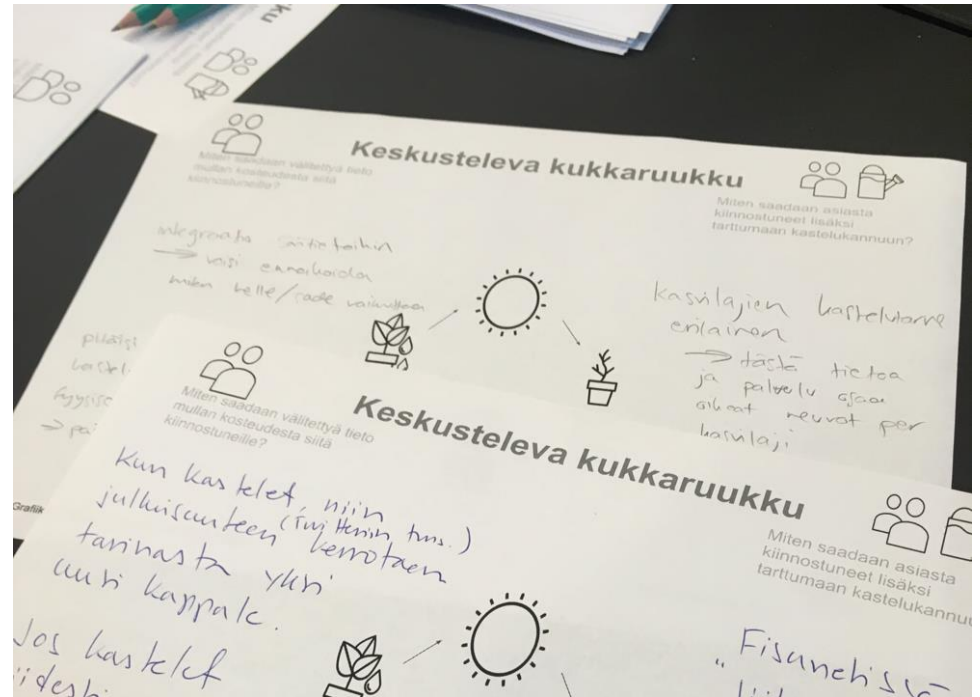 Keskusteleva kukkaruukku
Miten saadaan välitettyä tieto
mullan kosteudesta siitä
kiinnostuneille?
Miten saadaan asiasta
kiinnostuneet lisäksi
tarttumaan kastelukannuun?
voisi ennakoida
miten helle/sade
kasvilajien kastelutarve
erilainen
→ tästä tietoa
ja palvelu osaa
oikeat neuvot per
kasvilaji
Grafiik
Keskusteleva kukkaruukku
Miten saadaan välitettyä tieto
mullan kosteudesta siitä
kiinnostuneille?
Miten saadaan asiasta
kiinnostuneet lisäksi
tarttumaan kastelukannuu
Kun kastelet, niin
julkisuuteen (Twitteriin tms.)
kerrotaan
tarinasta yksi
uusi kappale.
Jos kastelet